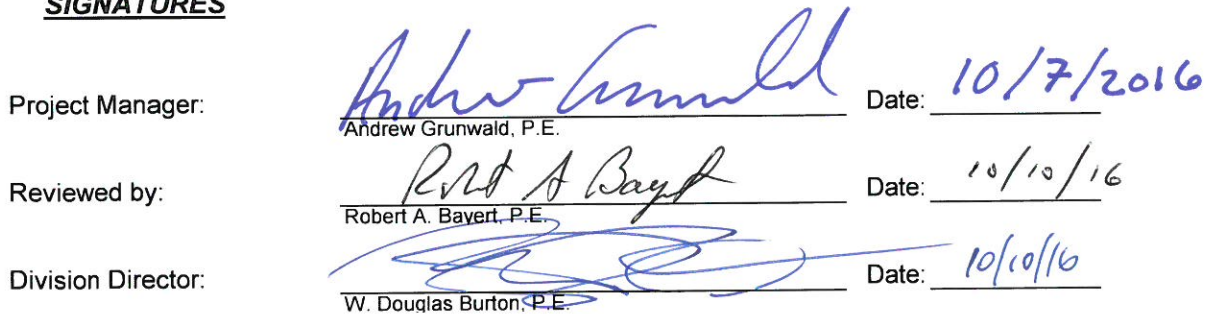 SIGNATURES
Project Manager: Andrew Grunwald Date: 10/7/2016
Andrew Grunwald, P.E.
Reviewed by: Robert A Bayert Date: 10/10/16
Robert A. Bayert, P.E.
Division Director: Date: 10/10/16
W. Douglas Burton, P.E.